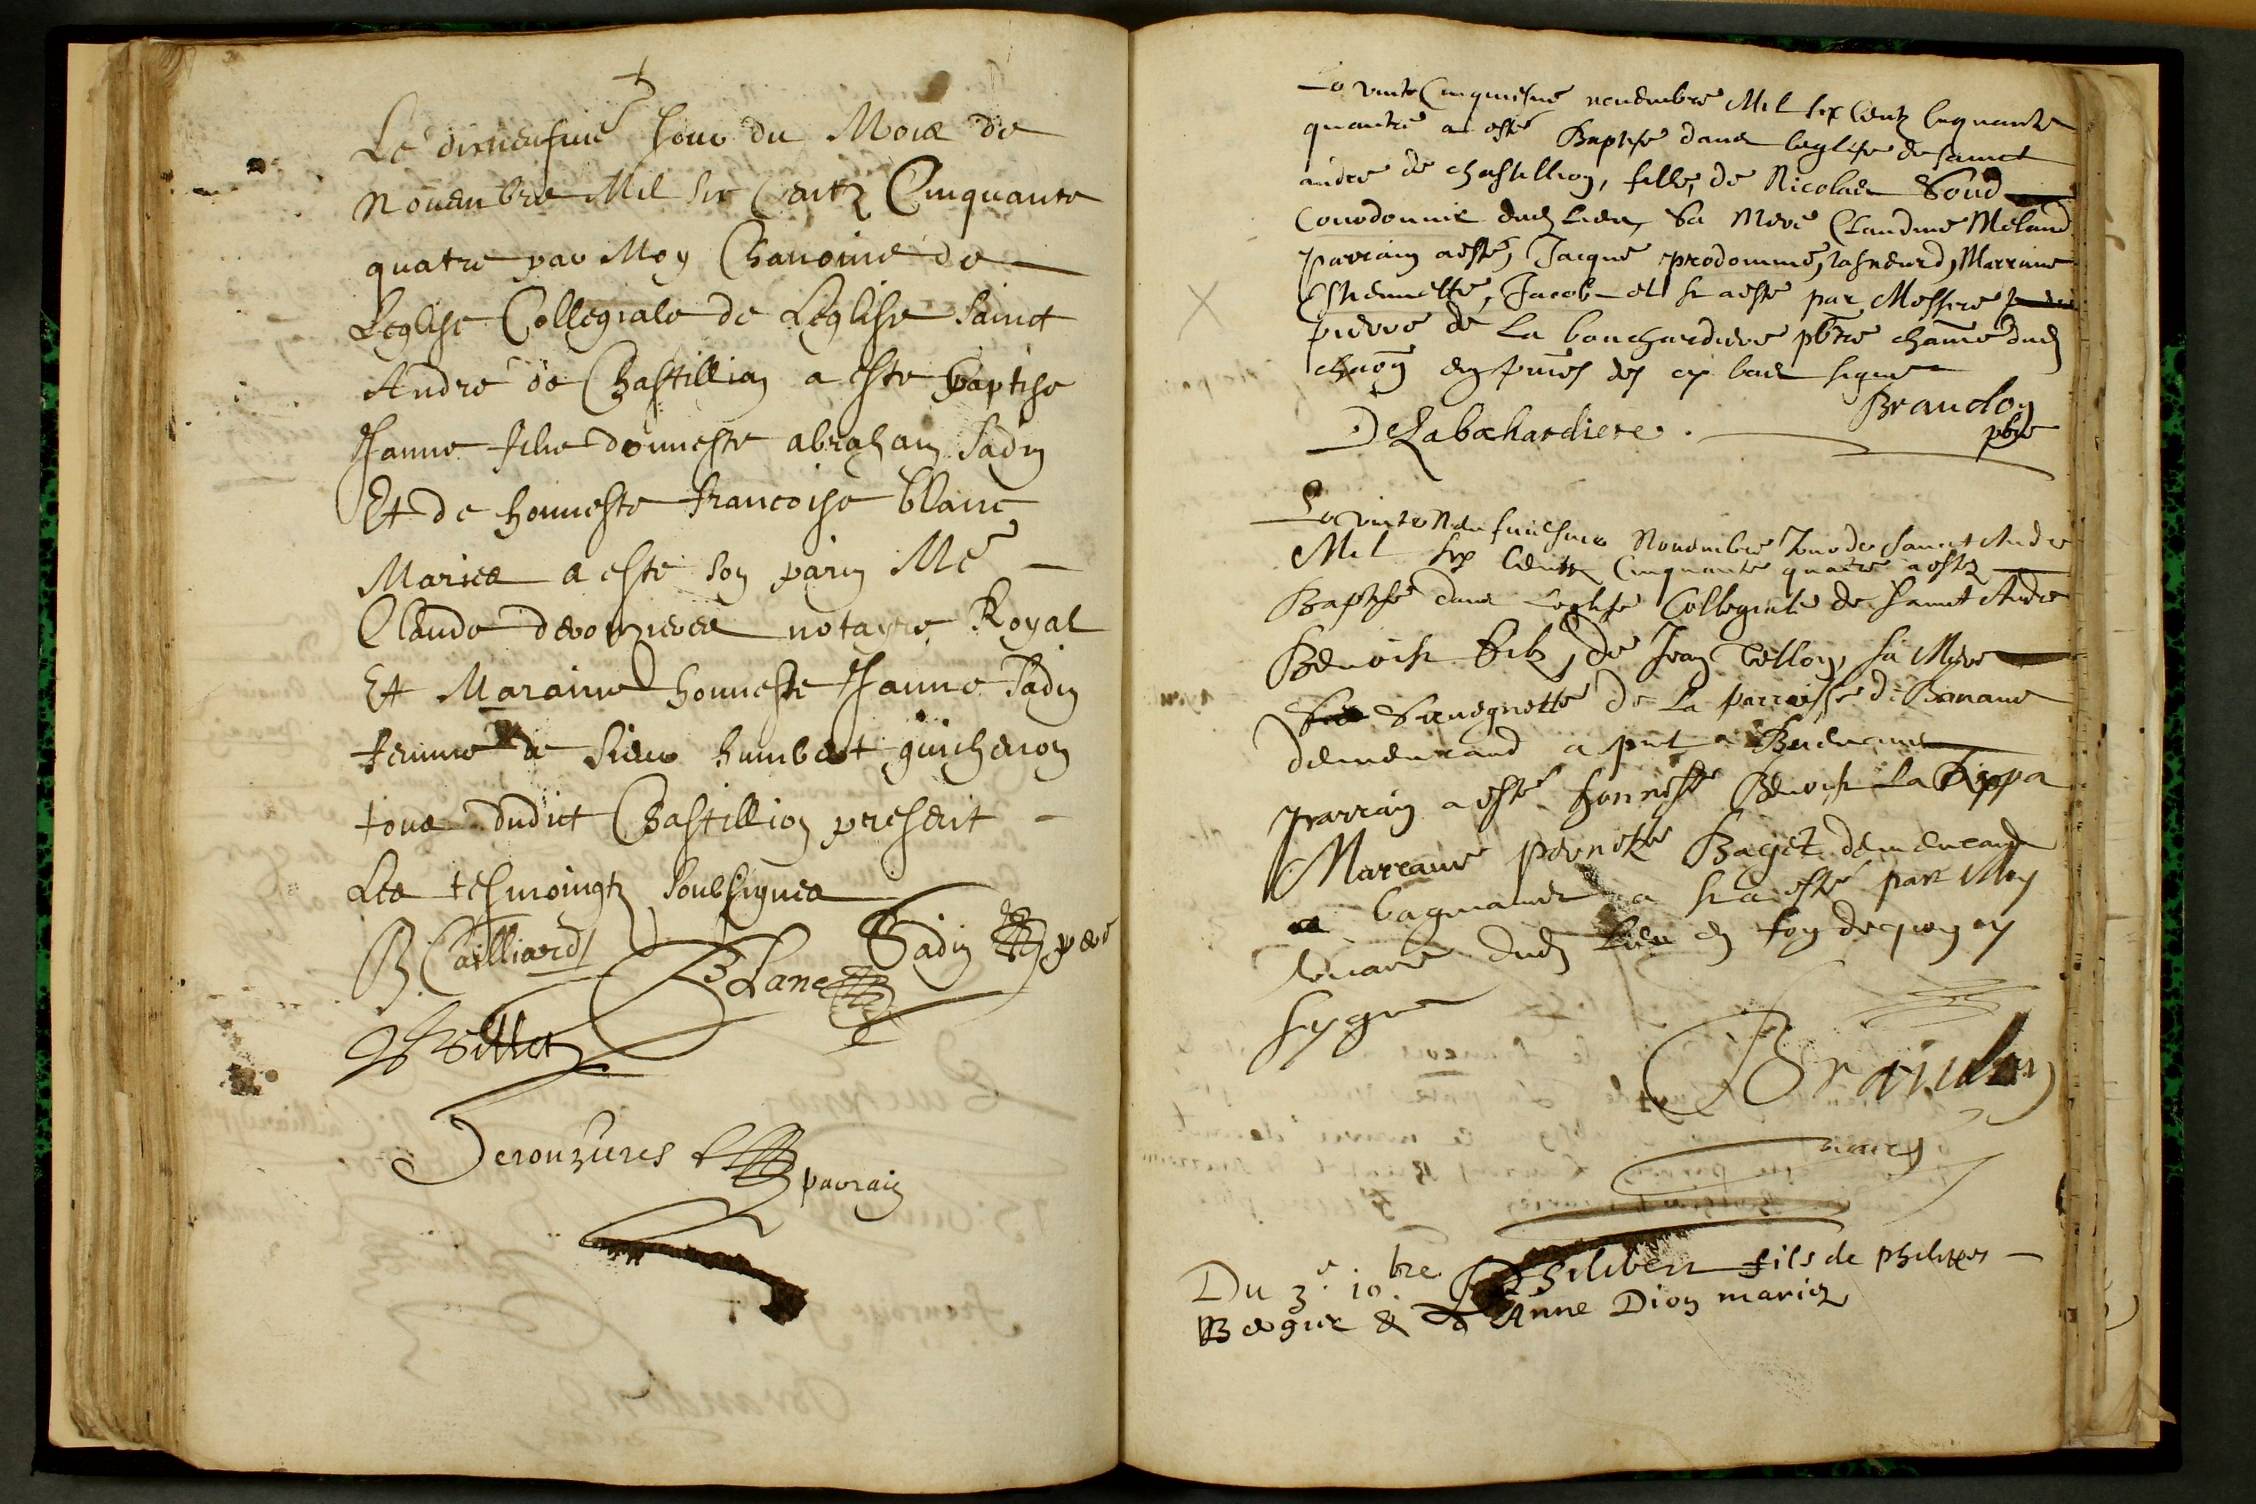 Le dixneufme Jour du Mois de
Nouembre Mil six Centz Cinquante
quatre par Moy Chanoine de
Leglise Collegiale de Leglise Sainct
Andre de Chastillion a este baptise
Janne filie donneste abraham Sadin
Et de honneste francoise blanc
Maries a este son parin Me
Claude derouzieres notayre Royal
Et Maraine honneste Janne Sadin
femme de Sieur humbert guichenon
tous dudict Chastillion present
Les tesmoingtz soubsignes
B. Cailliard
Sadin pere
BLanc
Billiet
Derouzieres
parrain
Le vintecinquiesme nouembre Mil six Centz Cinquante
quattre a esté Baptise dans leglise de sainct
andre de chastillion, fille, de Nicolas
Courdonnie dud lieu, Sa Mere Claudine Meland
parrain a esté, Jacque prodomme, Marrine
Estiennette, Jacob et a este par Messire
pierre de La bouchardiere pbre dud
cy bas signe
Brandon
pbre
DeLabochardiere.
Le vinteneufuiesme Nouembre Jour de sainct Andre
Mil six Centz Cinquante quatre a esté
Baptise dans Leglise Collegiale de sainct Andre
Benoist filz, de Jean Tellon, sa Mere
de La parroisse de Banans
demeurand a pnt a
parrain a esté honneste Benoist La
Marraine pernette Baget demeurand
a este par Moy
vicaire dud Lieu en foy dequoy ay
sygne
Brandon
vicaire
Du 3e 10bre. Philibert fils de philipes
& d'Anne Dion mariez